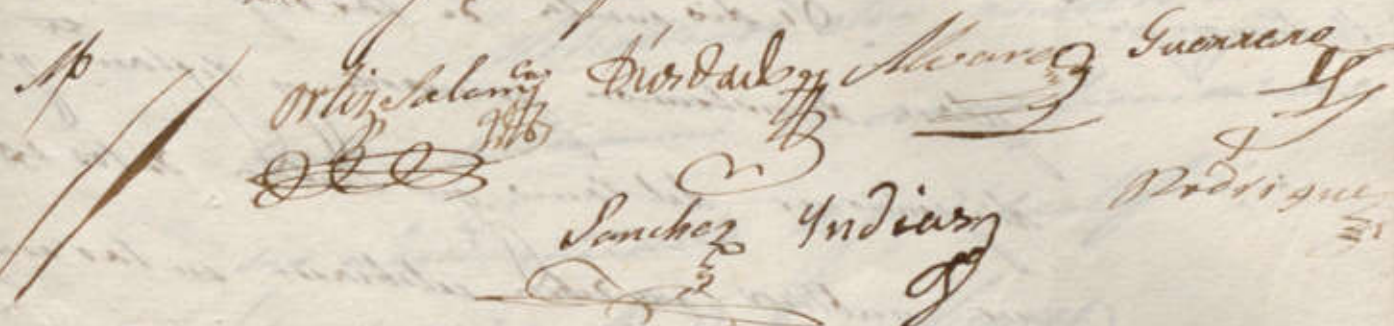 Ortiz Salam.ca Diosdado Alvarez Guerrero
Sanchez Yndias Rodriguez